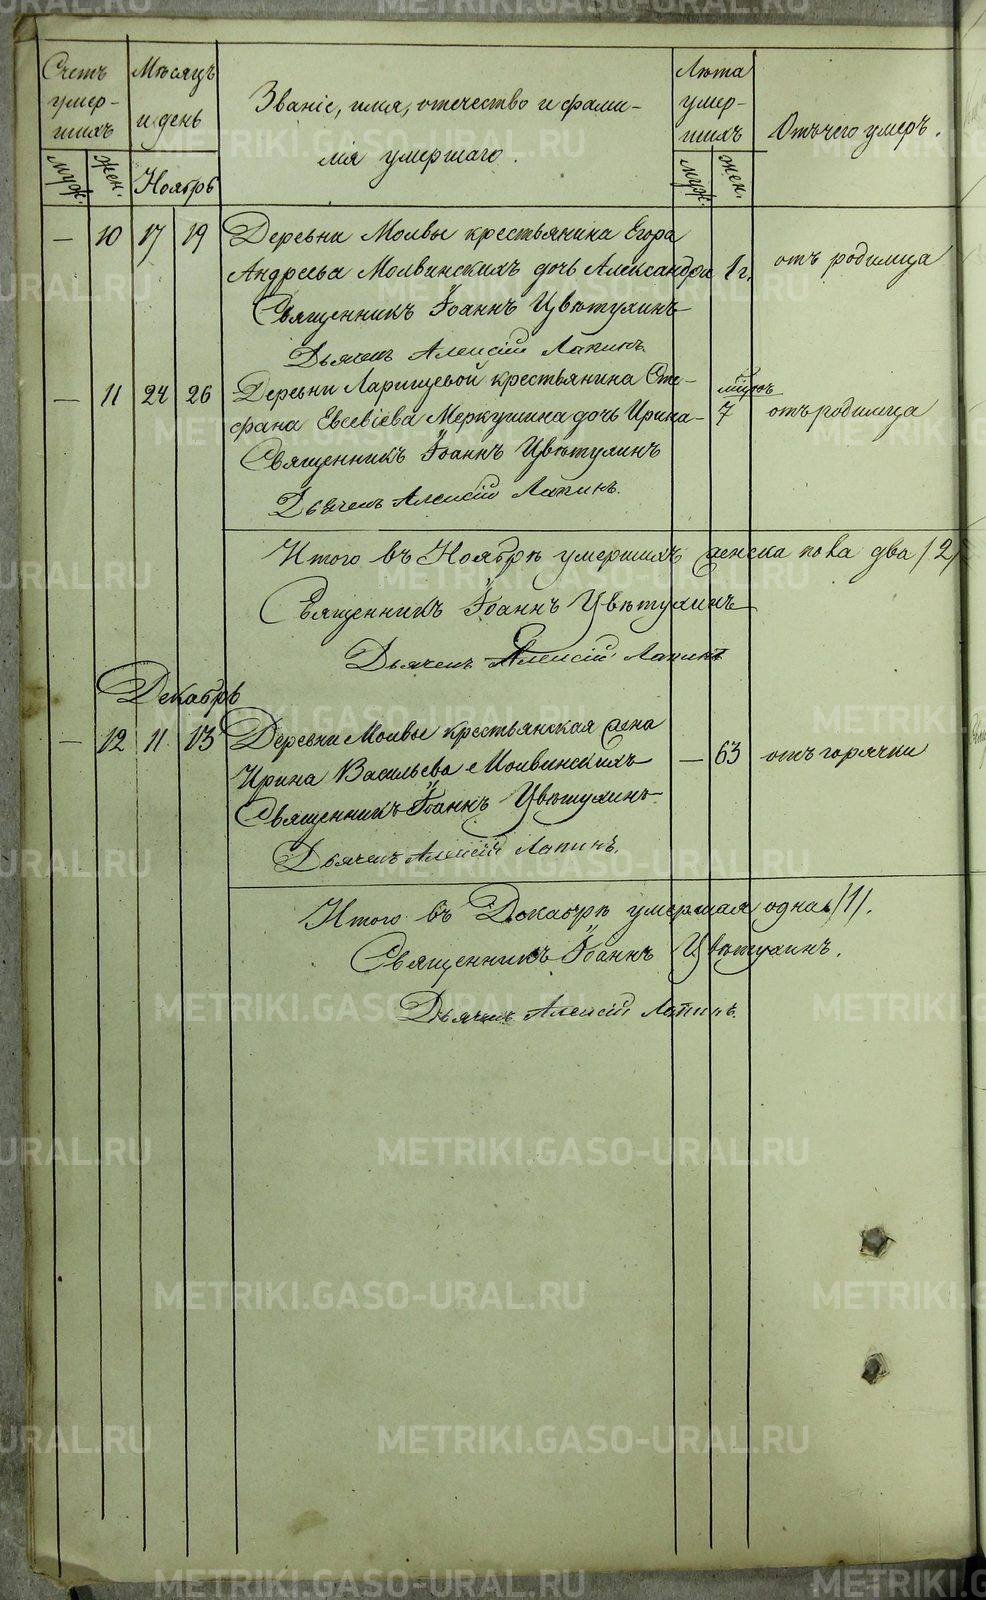 Счетъ умер-шихъ
муж.
жен.
Мѣсяцъ и день
Ноябрь
Званіе, имя, отечество и фами-
лія умершаго.
Лѣта умер-шихъ
муж.
жен.
Отъ чего умеръ.
— 10 17 19 Деревни Молвы крестьянина Егора
Андреева Молвинскихъ дочь Александра 1 г. отъ родимца
Священникъ Іоаннъ Цвѣтухинъ
Дьячекъ Алексій Лапинъ.
— 11 24 26 Деревни Ларищевой крестьянина Сте-
фана Евсевіева Меркушина дочь Ирина — 7 отъ родимца
Священникъ Іоаннъ Цвѣтухинъ
Дьячекъ Алексій Лапинъ.
Итого въ Ноябрѣ умершихъ женска пола два /2/
Священникъ Іоаннъ Цвѣтухинъ
Дьячекъ Алексій Лапинъ
Декабрь
— 12 11 13 Деревни Молвы крестьянская жена
Ирина Васильева Молвинскихъ — 63 отъ горячки
Священникъ Іоаннъ Цвѣтухинъ
Дьячекъ Алексій Лапинъ.
Итого въ Декабрѣ умершая одна /1/.
Священникъ Іоаннъ Цвѣтухинъ.
Дьячекъ Алексій Лапинъ.
METRIKI.GASO-URAL.RU